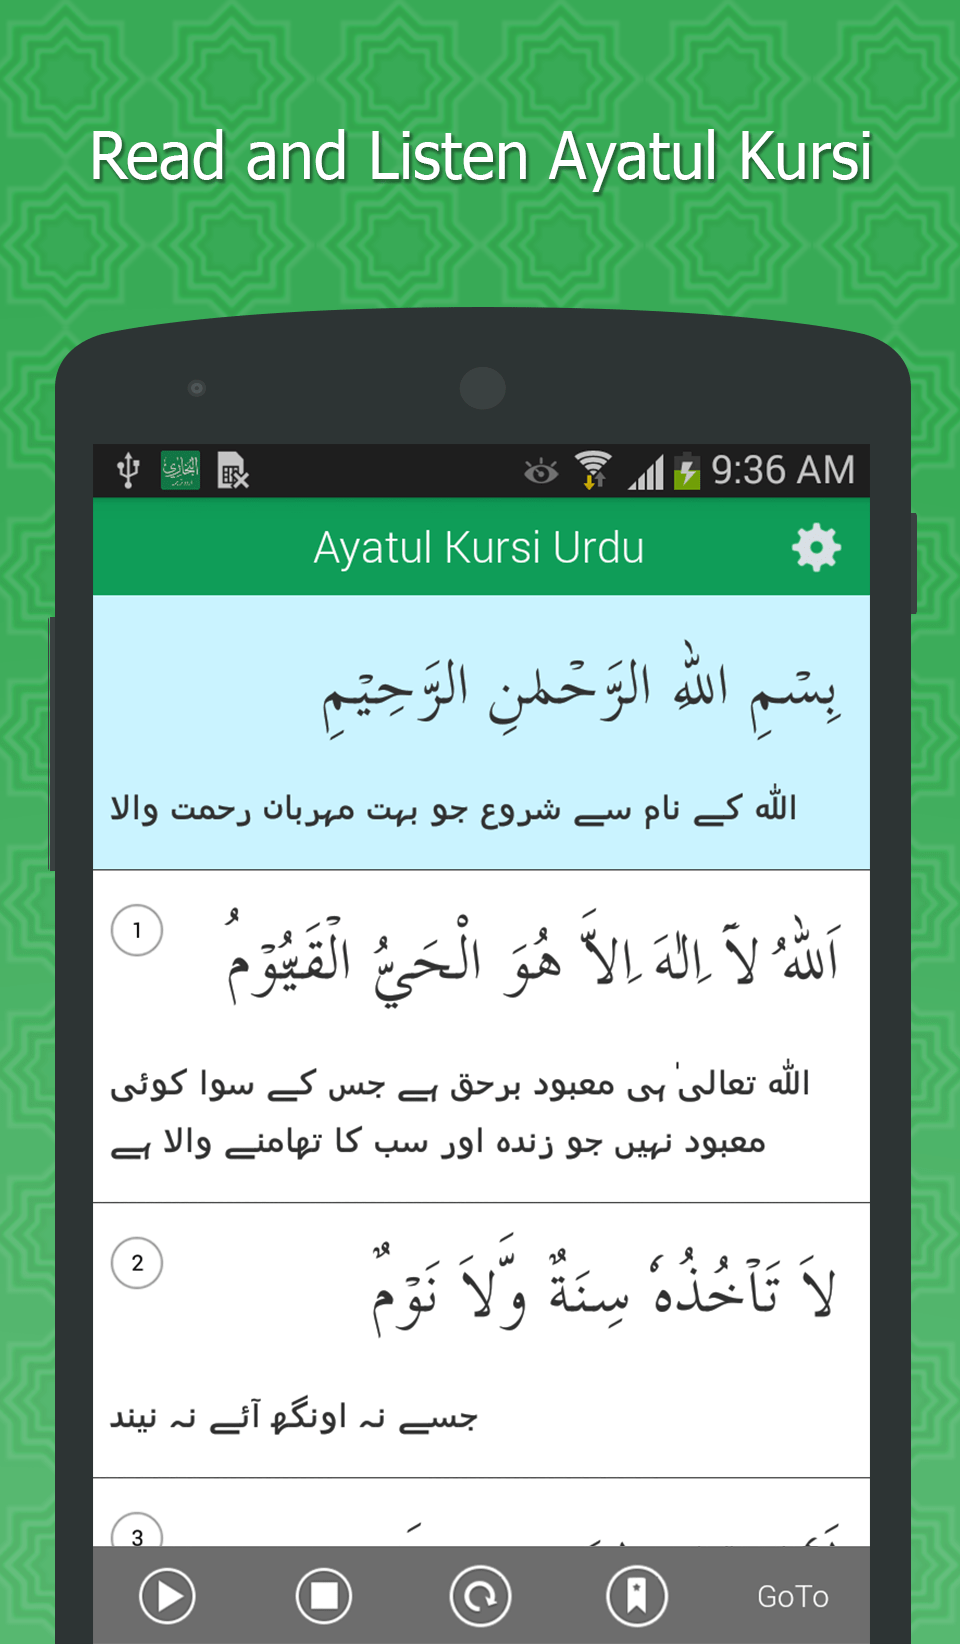 Read and Listen Ayatul Kursi
9:36 AM
Ayatul Kursi Urdu
بِسْمِ اللّٰهِ الرَّحْمٰنِ الرَّحِيْمِ
اللہ کے نام سے شروع جو بہت مہربان رحمت والا
1
اَللّٰهُ لَآ اِلٰهَ اِلاَّ هُوَ الْحَيُّ الْقَيُّوْمُ
اللہ تعالیٰ ہی معبود برحق ہے جس کے سوا کوئی
معبود نہیں جو زندہ اور سب کا تھامنے والا ہے
2
لاَ تَاْخُذُهٗ سِنَةٌ وَّلاَ نَوْمٌ
جسے نہ اونگھ آئے نہ نیند
3
GoTo